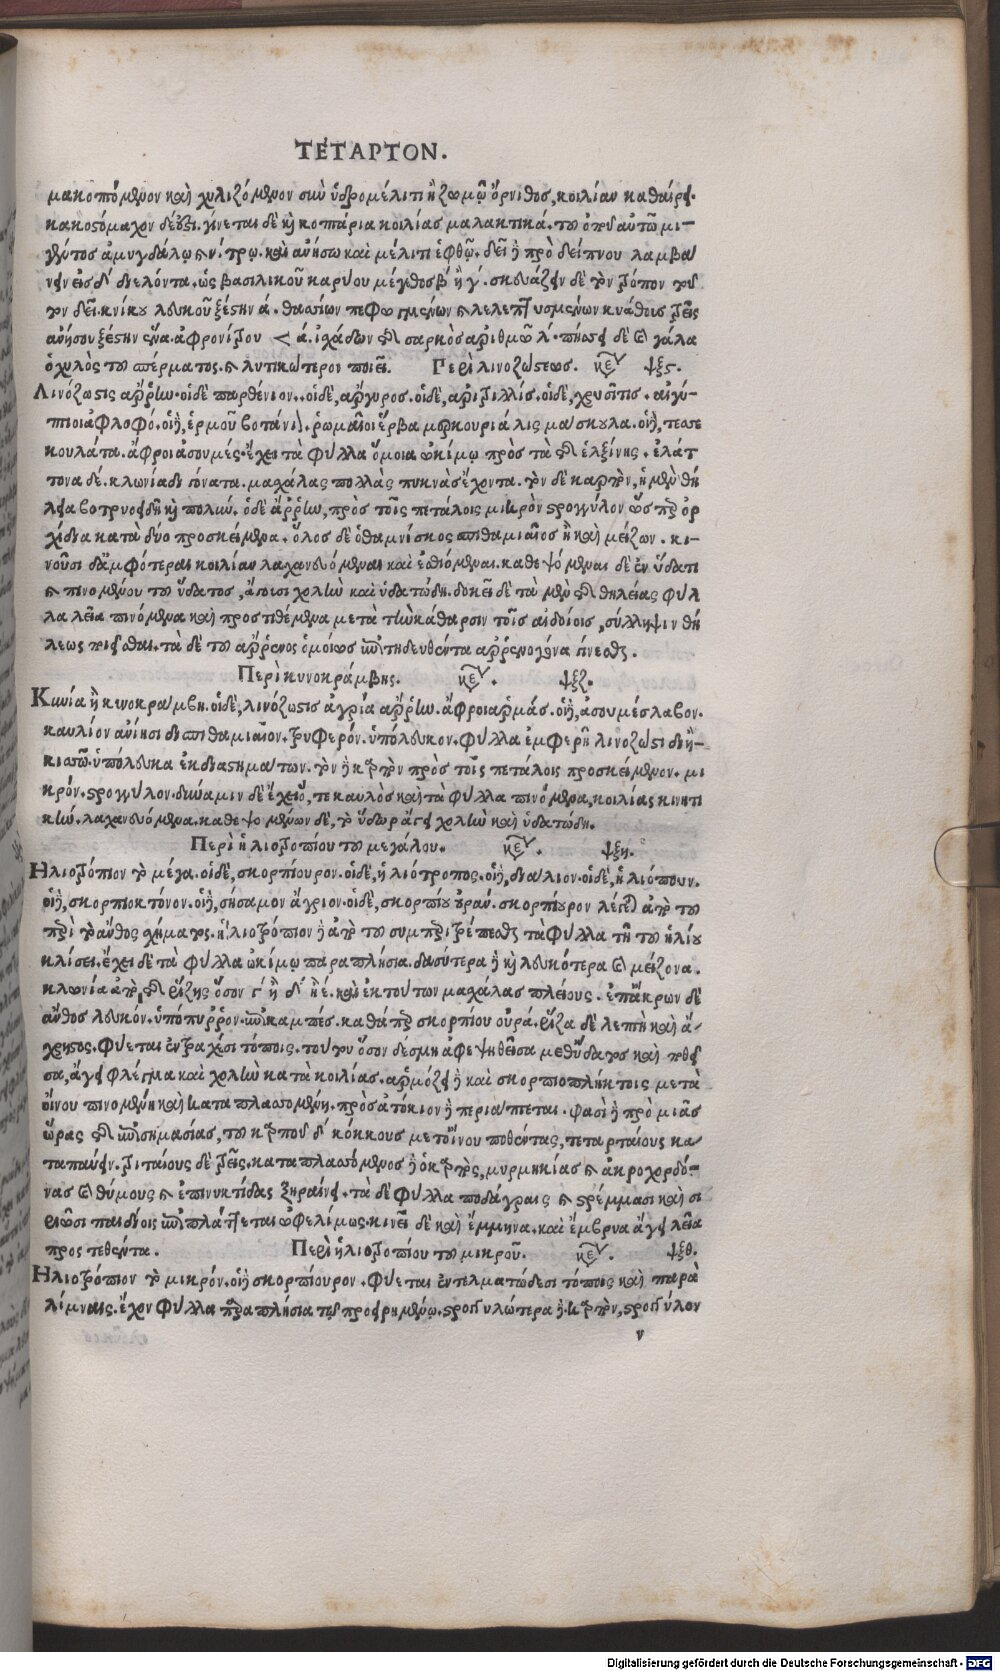 ΤΈΤΑΡΤΟΝ.
μακοπτόμενον καὶ χυλιζόμενον σὺν ὑδρομέλιτι ἢ ζωμῷ ὄρνιθος, κοιλίαν καθαίρει.
κακοστόμαχον δέ ἐστι. γίνεται δὲ καὶ κοπτάρια κοιλίας μαλακτικά. τοῦ ὀποῦ αὐτῶν μι-
γέντος ἀμυγδάλῳ καὶ νίτρῳ. καὶ ἀνήσῳ καὶ μέλιτι ἑφθῷ. δεῖ δὲ πρὸ δείπνου λαμβά
νειν εἰς δ' διελόντα. ὡς βασιλικοῦ καρύου μέγεθος β ἢ γ. σκευάζειν δὲ τὸν τρόπον τοῦ
τον δεῖ. κνίκου λευκοῦ ξέστην ά. θασίων πεφωγμένων καὶ λελεπισμένων κυάθους τρεῖς
ἀνήσου ξέστην ἕνα. ἀφρονίτρου < ά. ἰχάδων τῆς σαρκὸς ἀριθμῷ λ. πήσσει δὲ καὶ γάλα
ὁ χυλὸς τοῦ σπέρματος. καὶ λυτικώτερον ποιεῖ. Περὶ λινοζώστεως. κε. ψξς.
Λινόζωστις ἄρρην. οἱ δὲ παρθένιον. οἱ δὲ, ἄργυρος. οἱ δὲ, ἀριτριλλίς. οἱ δὲ, χρυσῖτις. αἰγύ-
πτιοι ἀφλοφό. οἱ δὲ, ἑρμοῦ βοτάνη. ῥωμαῖοι ἕρβα μερκουριάλις μάσκουλα. οἱ δὲ, τεστε
κουλάτα. ἄφροι ἀσουμές. ἔχει τὰ φύλλα ὅμοια ὠκίμῳ πρὸς τὰ τῆς ἑλξίνης. ἐλάτ
τονα δέ. κλωνία διγόνατα. μασχάλας πολλὰς πυκνὰς ἔχοντα. τὸν δὲ καρπὸν, ἡ μὲν θή
λεια βοτρυοειδῆ καὶ πολύν. ὁ δὲ ἄρρην, πρὸς τοῖς πετάλοις μικρὸν στρογγύλον ὥσπερ ὀρ
χίδια κατὰ δύο προσκείμενα. ὅλος δὲ ὁ θαμνίσκος σπιθαμιαῖος ἢ καὶ μείζων. κι-
νοῦσι δ' ἀμφότεραι κοιλίαν λαχανευόμεναι καὶ ἐσθιόμεναι. καθεψόμεναι δὲ ἐν ὕδατι
καὶ πινομένου τοῦ ὕδατος, ἄγουσι χολὴν καὶ ὑδατώδη. δοκεῖ δὲ τὰ μὲν τῆς θηλείας φύλ
λα λεῖα πινόμενα καὶ προστιθέμενα μετὰ τὴν κάθαρσιν τοῖς αἰδοίοις, σύλληψιν θή
λεως ποιεῖσθαι. τὰ δὲ τοῦ ἄρρενος ὁμοίως ἐπιτηδευθέντα ἀρρενογόνα γίνεσθαι.
Περὶ κυνοκράμβης. κε. ψξζ.
Κυνία ἢ κυνοκράμβη. οἱ δὲ, λινόζωστις ἀγρία ἄρρην. ἄφροι ἁρμάς. οἱ δὲ, ἀσουμέσλαβον.
καυλίον ἀνίησι δισπιθαμιαῖον. τρυφερόν. ὑπόλευκον. φύλλα ἐμφερῆ λινοζώστιδι ἢ
κισσῷ. ὑπόλευκα ἐκ διαστημάτων. τὸν δὲ καρπὸν πρὸς τοῖς πετάλοις προσκείμενον. μι
κρόν. στρογγύλον. δύναμιν δὲ ἔχει ὅ, τε καυλὸς καὶ τὰ φύλλα πινόμενα, κοιλίας κινητι
κήν. λαχανευόμενα. καθεψομένων δὲ, τὸ ὕδωρ ἄγει χολὴν καὶ ὑδατώδη.
Περὶ ἡλιοτροπίου τοῦ μεγάλου. κε. ψξη.
Ηλιοτρόπιον τὸ μέγα. οἱ δὲ, σκορπίουρον. οἱ δὲ, ἡλιότροπος. οἱ δὲ, διάλιον. οἱ δὲ, ἡλιόπουν.
οἱ δὲ, σκορπιοκτόνον. οἱ δὲ, σήσαμον ἄγριον. οἱ δὲ, σκορπίου οὐράν. σκορπίουρον λέγεται ἀπὸ τοῦ
περὶ τὸ ἄνθος σχήματος. ἡλιοτρόπιον δὲ ἀπὸ τοῦ συμπεριτρέπεσθαι τὰ φύλλα τῇ τοῦ ἡλίου
κλίσει. ἔχει δὲ τὰ φύλλα ὠκίμῳ παραπλήσια. δασύτερα δὲ καὶ λευκότερα καὶ μείζονα.
κλωνία ἀπὸ τῆς ῥίζης ὅσον γ' ἢ δ' ἢ έ. καὶ ἐκ τούτων μασχάλας πλείους. ἐπ' ἄκρων δὲ
ἄνθος λευκόν. ὑπόπυρρον. ἐπικαμπές. καθάπερ σκορπίου οὐρά. ῥίζα δὲ λεπτὴ καὶ ἄ-
χρηστος. φύεται ἐν τραχέσι τόποις. τούτου ὅσον δέσμη ἀφεψηθεῖσα μεθ' ὕδατος καὶ ποθεῖ
σα, ἄγει φλέγμα καὶ χολὴν κατὰ κοιλίας. ἁρμόζει δὲ καὶ σκορπιοπλήκτοις μετὰ
οἴνου πινομένη καὶ καταπλασσομένη. πρὸς ἀτόκιον δὲ περιάπτεται. φασὶ δὲ πρὸ μιᾶς
ὥρας τῆς ἐπισημασίας, τοῦ καρποῦ δ' κόκκους μετ' οἴνου ποθέντας, τεταρταίους κα
ταπαύειν. τριταίους δὲ τρεῖς. καταπλασσόμενος δὲ ὁ καρπὸς, μυρμηκίας καὶ ἀκροχορδό-
νας καὶ θύμους καὶ ἐπινυκτίδας ξηραίνει. τὰ δὲ φύλλα ποδάγραις καὶ στρέμμασι καὶ σι
ριῶσι παιδίοις ἐπιπλάττεται ὠφελίμως. κινεῖ δὲ καὶ ἔμμηνα. καὶ ἔμβρυα ἄγει λεῖα
προστεθέντα. Περὶ ἡλιοτροπίου τοῦ μικροῦ. κε. ψξθ.
Ηλιοτρόπιον τὸ μικρόν. οἱ δὲ σκορπίουρον. φύεται ἐν τελματώδεσι τόποις καὶ παρὰ
λίμναις. ἔχον φύλλα παραπλήσια τῷ προειρημένῳ. στρογγυλώτερα δὲ. καρπὸν, στρογγύλον
ν
Digitalisierung gefördert durch die Deutsche Forschungsgemeinschaft - DFG